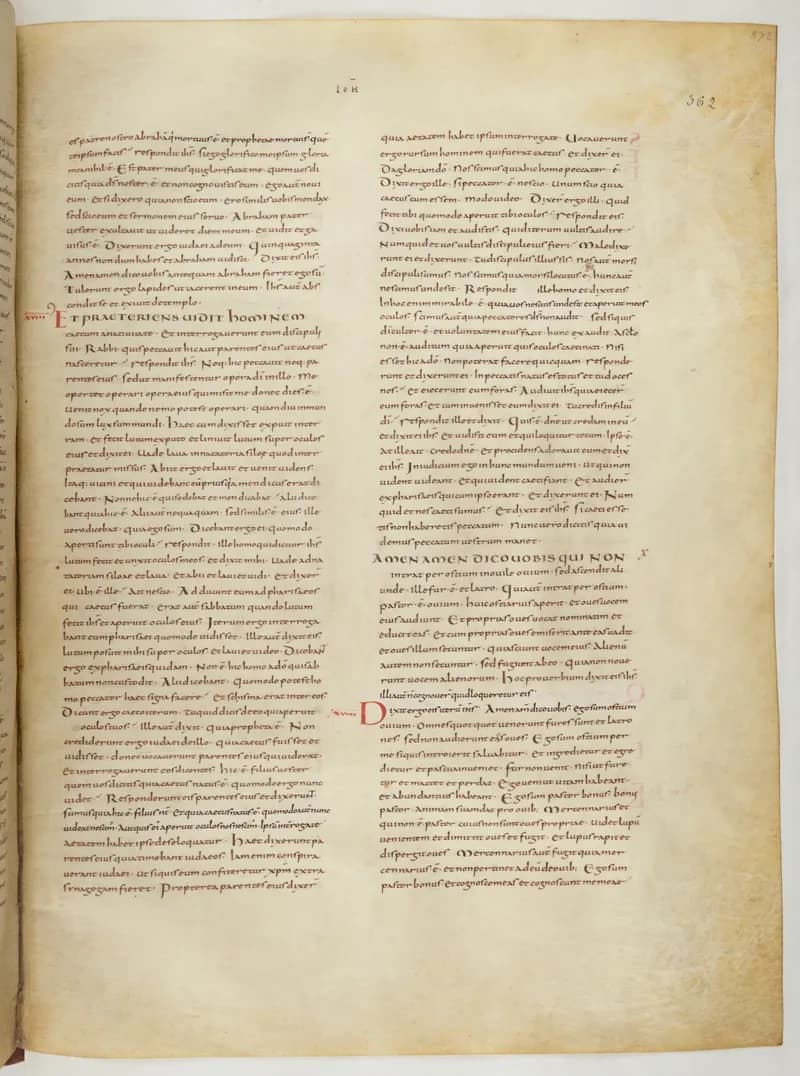 ioħ
362
es patre nostro abrahā q̄ mortuus ē et prophetae mortui sunt quē
te ipsum facis Respondit ihs Si ego glorifico me ipsum gloria
mea nihil ē Est pater meus qui glorificat me quem uos di
citis quia ds noster ē et non cognouistis eum ego autē noui
eum Et si dixero quia non scio eum ero similis uobis mendax
sed scio eum et sermonem eius seruo Abraham pater
uester exultauit ut uideret diem meum et uidit et ga
uisus ē Dixerunt ergo iudaei ad eum Quinquaginta
annos nondum habes et abraham uidisti Dixit eis ihs
Amen amen dico uobis antequam abraham fieret ego sū
Tulerunt ergo lapides ut iacerent in eum Ihs autē abs
condit se et exiuit de templo
xviii ET PRAETERIENS UIDIT HOMINEM
caecum a natiuitate Et interrogauerunt eum discipuli
sui Rabbi quis peccauit hic aut parentes eius ut caecus
nasceretur Respondit ihs Neq; hic peccauit neq; pa
rentes eius sed ut manifestentur opera dī in illo Me
oportet operari opera eius qui misit me donec dies ē
Uenit nox quando nemo potest operari quamdiu in mun
do sum lux sum mundi Haec cum dixisset expuit in ter
ram et fecit lutum ex sputo et liniuit lutum super oculos
eius et dixit ei Uade laua in natatoria siloae quod inter
praetatur missus Abiit ergo et lauit et uenit uidens
Itaq; uicini et qui uidebant eū prius quia mendicus erat di
cebant Nonne hic ē qui sedebat et mendicabat Alii dice
bant quia hic ē Alii autē nequaquam sed similis ē eius Ille
uero dicebat quia ego sum Dicebant ergo ei quomodo
aperti sunt tibi oculi Respondit Ille homo qui dicitur ihs
lutum fecit et unxit oculos meos et dixit mihi Uade ad na
tatoriam siloae et laua Et abii et laui et uidi Et dixer̄
ei Ubi ē ille Ait nescio Adducunt eum ad pharisaeos
qui caecus fuerat Erat autē sabbatum quando lutum
fecit ihs et aperuit oculos eius Iterum ergo interroga
bant eum pharisaei quomodo uidisset Ille autē dixit eis
lutum posuit mihi super oculos et laui et uideo Dicebant
ergo ex pharisaeis quidam Non ē hic homo a dō qui sab
batum non custodit Alii dicebant Quomodo potest ho
mo peccator haec signa facere Et schisma erat inter eos
Dicunt ergo caeco iterum Tu quid dicis de eo qui aperuit
oculos tuos Ille autē dixit quia propheta ē Non
crediderunt ergo iudaei de illo quia caecus fuisset et
uidisset donec uocauerunt parentes eius qui uiderat
Et interrogauerunt eos dicentes Hic ē filius uester
quem uos dicitis quia caecus natus ē quomodo ergo nunc
uidet Responderunt eis parentes eius et dixerunt
scimus quia hic ē filius nr̄ Et quia caecus natus ē quomodo autē nunc
uideat nescimus Aut quis ei aperuit oculos nos nescimus Ipsum interrogate
aetatem habet ipse de se loquatur Haec dixerunt pa
rentes eius quia timebant iudaeos Iam enim conspira
uerant iudaei ut si quis eum confiteretur xpm extra
synagogam fieret Propterea parentes eius dixer̄
quia aetatem habet ipsum interrogate Uocauerunt
ergo rursum hominem qui fuerat caecus et dixer̄ ei
Da gloriam dō Nos scimus quia hic homo peccator ē
Dixit ergo ille Si peccator ē nescio Unum scio quia
caecus cum essem modo uideo Dixer̄ ergo illi quid
fecit tibi quomodo aperuit tibi oculos Respondit eis
Dixi uobis iam et audistis quid iterum uultis audire
Numquid et uos uultis discipuli eius fieri Maledixe
runt ei et dixerunt Tu discipulus illius sis Nos autē mosi
discipuli sumus Nos scimus quia mosi locutus ē hunc autē
nescimus unde sit Respondit ille homo et dixit eis
In hoc enim mirabile ē quia uos nescitis unde sit et aperuit meos
oculos scimus autē quia peccatores ds non audit sed si quis
dī cultor ē et uoluntatem eius facit hunc exaudit A sclo
non ē auditum quia aperuit quis oculos caeci nati Nisi
esset hic a dō non poterat facere quicquam Responde
runt et dixerunt ei In peccatis natus es totus et tu doces
nos Et eiecerunt eum foras Audiuit ihs quia eiecer̄
eum foras et cum inuenisset eum dixit ei Tu credis in filiū
dī Respondit ille et dixit Quis ē dne ut credam in eū
et dixit ei ihs Et uidisti eum et qui loquitur tecum ipse ē
At ille ait Credo dne Et procidens adorauit eum et dix̄
ei ihs In iudicium ego in hunc mundum ueni Ut qui non
uident uideant et qui uident caeci fiant Et audier̄
ex pharisaeis qui cum ipso erant et dixerunt ei Num
quid et nos caeci sumus Et dixit eis ihs si caeci esse
tis non haberetis peccatum Nunc uero dicitis quia ui
demus peccatum uestrum manet
AMEN AMEN DICO UOBIS QUI NON x
intrat per ostium in ouile ouium sed ascendit ali
unde Ille fur ē et latro Qui autē intrat per ostium
pastor ē ouium huic ostiarius aperit et oues uocem
eius audiunt Et proprias oues uocat nominatim et
educit eas Et cum proprias oues emiserit ante eas uadit
et oues illum secuntur quia sciunt uocem eius Alienū
autem non secuntur sed fugiunt ab eo quia non noue
runt uocem alienorum Hoc prouerbium dixit eis ihs
illi autē n̄ cognouer̄ quid loqueretur eis
xviiii Dixit ergo eis iterū ihs Amen amen dico uobis ego sum ostium
ouium Omnes quotquot uenerunt fures sunt et latro
nes sed non audierunt eos oues Ego sum ostium per
me si quis introierit saluabitur et ingredietur et egre
dietur et pascua inueniet Fur non uenit nisi ut fure
tur et mactet et perdat Ego ueni ut uitam habeant
et abundantius habeant Ego sum pastor bonus bonus
pastor animam suam dat pro ouib; Mercennarius et
qui non ē pastor cuius non sunt oues propriae uidet lupū
uenientem et dimittit oues et fugit Et lupus rapit et
dispergit oues Mercennarius autē fugit quia mer
cennarius ē et non pertinet ad eū de ouib; Ego sum
pastor bonus et cognosco meas et cognoscunt me meae